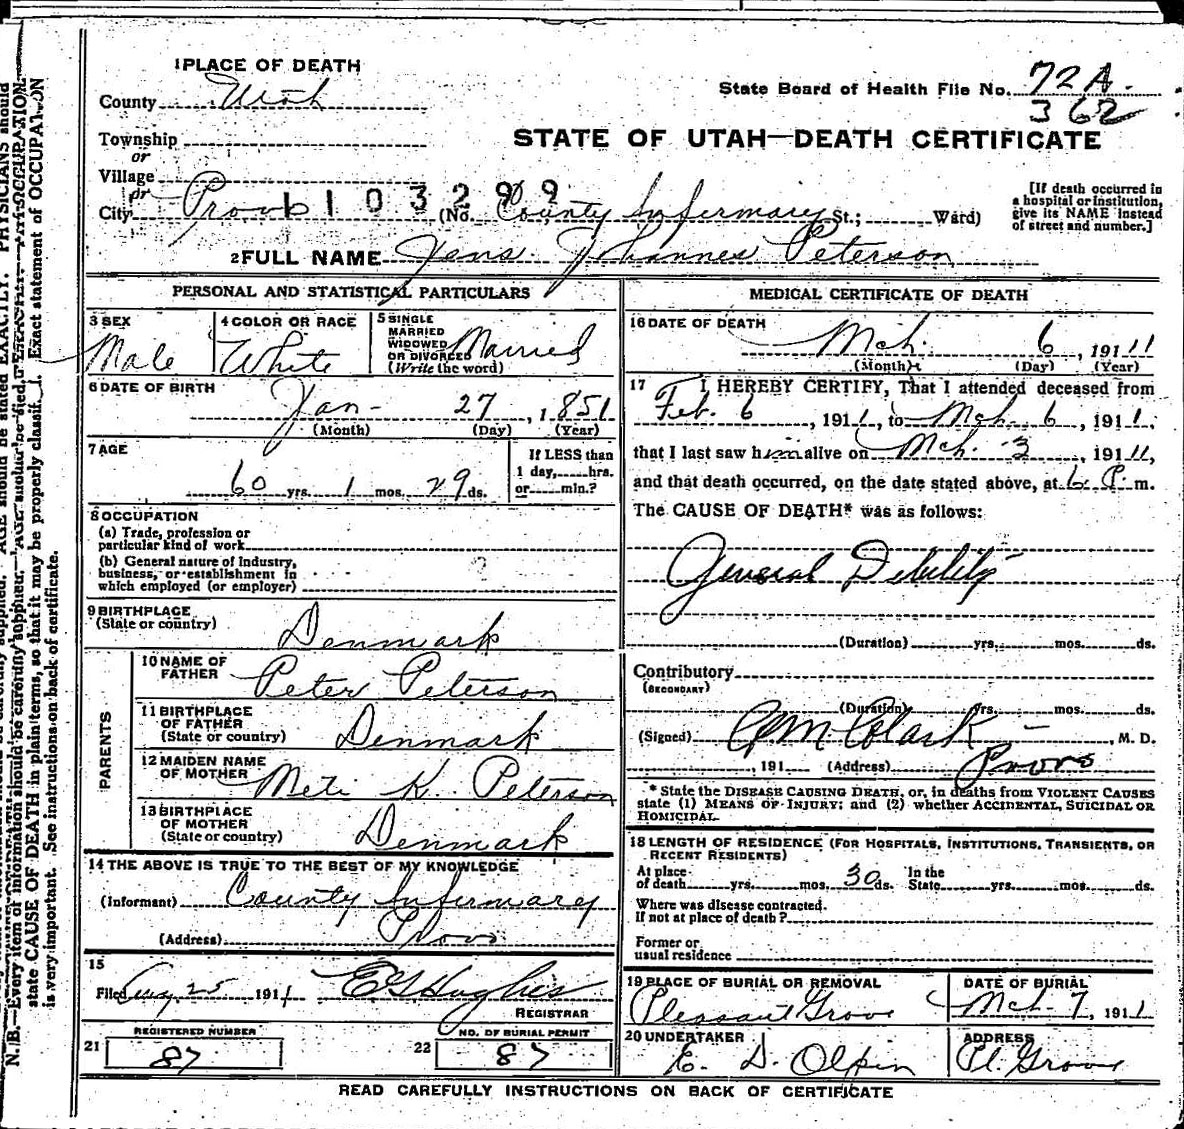 1 PLACE OF DEATH
County Utah
State Board of Health File No. 72A.
362
Township
or
Village
or
City Provo
1103299
(No. County Infirmary St.; Ward)
STATE OF UTAH—DEATH CERTIFICATE
[If death occurred in
a hospital or institution,
give its NAME instead
of street and number.]
2 FULL NAME Jens Johannes Peterson
PERSONAL AND STATISTICAL PARTICULARS
3 SEX
Male
4 COLOR OR RACE
White
5 SINGLE
MARRIED
WIDOWED
OR DIVORCED
(Write the word)
Married
6 DATE OF BIRTH
Jan- 27, 1851
(Month) (Day) (Year)
7 AGE
60 yrs. 1 mos. 29 ds.
If LESS than
1 day, hrs.
or min.?
8 OCCUPATION
(a) Trade, profession or
particular kind of work
(b) General nature of industry,
business, or establishment in
which employed (or employer)
?
9 BIRTHPLACE
(State or country)
Denmark
PARENTS
10 NAME OF
FATHER
Peter Peterson
11 BIRTHPLACE
OF FATHER
(State or country)
Denmark
12 MAIDEN NAME
OF MOTHER
Meti K. Peterson
13 BIRTHPLACE
OF MOTHER
(State or country)
Denmark
14 THE ABOVE IS TRUE TO THE BEST OF MY KNOWLEDGE
(Informant) County Infirmary
(Address) Provo
15
Filed Aug 25 1911 E G Hughes
REGISTRAR
REGISTERED NUMBER
21 87
NO. OF BURIAL PERMIT
22 87
MEDICAL CERTIFICATE OF DEATH
16 DATE OF DEATH
Mch. 6, 1911
(Month) (Day) (Year)
17 I HEREBY CERTIFY, That I attended deceased from
Feb. 6, 1911, to Mch. 6, 1911,
that I last saw him alive on Mch. 3, 1911,
and that death occurred, on the date stated above, at 6 P. m.
The CAUSE OF DEATH* was as follows:
General Debility
(Duration) yrs. mos. ds.
Contributory
(SECONDARY)
(Duration) yrs. mos. ds.
(Signed) Clark, M. D.
, 191 (Address) Provo
* State the DISEASE CAUSING DEATH, or, in deaths from VIOLENT CAUSES
state (1) MEANS OF INJURY; and (2) whether ACCIDENTAL, SUICIDAL OR
HOMICIDAL.
18 LENGTH OF RESIDENCE (FOR HOSPITALS, INSTITUTIONS, TRANSIENTS, OR
RECENT RESIDENTS)
At place
of death yrs. mos. 30 ds.
In the
State yrs. mos. ds.
Where was disease contracted.
If not at place of death?
Former or
usual residence
19 PLACE OF BURIAL OR REMOVAL
Pleasant Grove
DATE OF BURIAL
Mch 7, 1911
20 UNDERTAKER
E. D. Olpin
ADDRESS
Pl. Grove
READ CAREFULLY INSTRUCTIONS ON BACK OF CERTIFICATE
N. B.—Every item of information should be carefully supplied. AGE should be stated EXACTLY. PHYSICIANS should
state CAUSE OF DEATH in plain terms, so that it may be properly classified. Exact statement of OCCUPATION
is very important. See instructions on back of certificate.